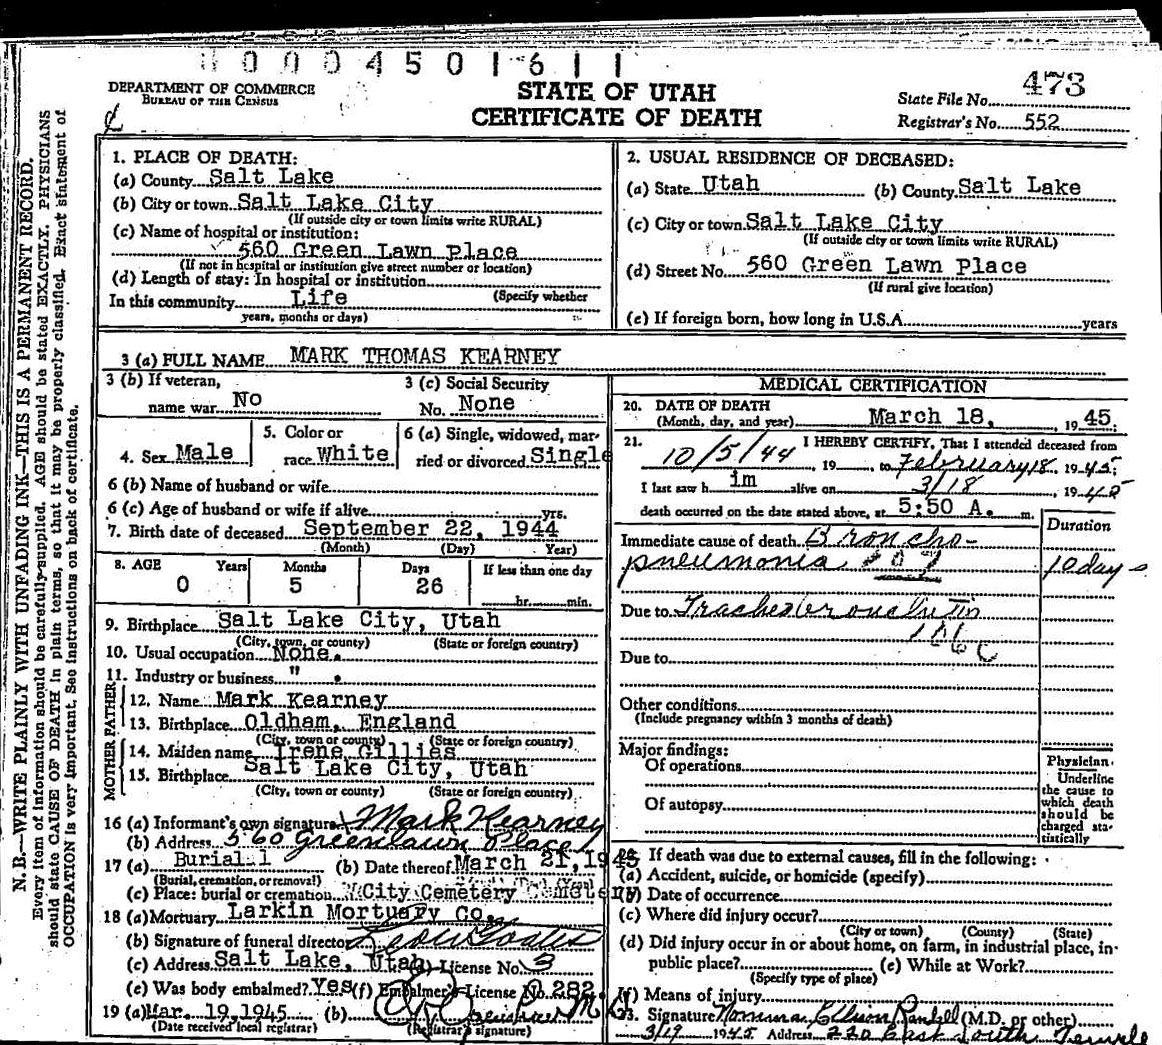 0004501611
DEPARTMENT OF COMMERCE
BUREAU OF THE CENSUS
STATE OF UTAH
CERTIFICATE OF DEATH
State File No. 473
Registrar's No. 552
N. B.—WRITE PLAINLY WITH UNFADING INK—THIS IS A PERMANENT RECORD.
Every item of information should be carefully supplied. AGE should be stated EXACTLY. PHYSICIANS
should state CAUSE OF DEATH in plain terms, so that it may be properly classified. Exact statement of
OCCUPATION is very important. See instructions on back of certificate.
1. PLACE OF DEATH:
(a) County Salt Lake
(b) City or town Salt Lake City
(If outside city or town limits write RURAL)
(c) Name of hospital or institution:
560 Green Lawn Place
(If not in hospital or institution give street number or location)
(d) Length of stay: In hospital or institution
(Specify whether
In this community Life
years, months or days)
2. USUAL RESIDENCE OF DECEASED:
(a) State Utah (b) County Salt Lake
(c) City or town Salt Lake City
(If outside city or town limits write RURAL)
(d) Street No. 560 Green Lawn Place
(If rural give location)
(e) If foreign born, how long in U.S.A. years
3 (a) FULL NAME MARK THOMAS KEARNEY
3 (b) If veteran,
name war No
3 (c) Social Security
No. None
4. Sex Male
5. Color or
race White
6 (a) Single, widowed, mar-
ried or divorced Single
6 (b) Name of husband or wife
6 (c) Age of husband or wife if alive yrs.
7. Birth date of deceased September 22, 1944
(Month) (Day) Year)
8. AGE Years Months Days If less than one day
0 5 26 hr. min.
9. Birthplace Salt Lake City, Utah
(City, town, or county) (State or foreign country)
10. Usual occupation None.
11. Industry or business " .
FATHER
12. Name Mark Kearney
13. Birthplace Oldham, England
(City, town or county) (State or foreign country)
MOTHER
14. Maiden name Irene Gillies
15. Birthplace Salt Lake City, Utah
(City, town or county) (State or foreign country)
16 (a) Informant's own signature Mark Kearney
(b) Address 560 Greenlawn Place
17 (a) Burial (b) Date thereof March 21, 1945
(Burial, cremation, or removal)
(c) Place: burial or cremation City Cemetery
18 (a) Mortuary Larkin Mortuary Co.
(b) Signature of funeral director
(c) Address Salt Lake, Utah (d) License No. 3
(e) Was body embalmed? Yes (f) Embalmer's License No. 282
19 (a) Mar. 19, 1945 (b)
(Date received local registrar) (Registrar's signature)
MEDICAL CERTIFICATION
20. DATE OF DEATH
(Month, day, and year) March 18, 1945.
21. I HEREBY CERTIFY, That I attended deceased from
10/5/44 , 19 to February 18, 1945;
I last saw h im alive on 3/18, 1945
death occurred on the date stated above, at 5:50 A. m.
Duration
Immediate cause of death Broncho-
pneumonia 107 10 days
Due to Tracheobronchitis
106c
Due to
Other conditions
(Include pregnancy within 3 months of death)
Major findings:
Of operations
Of autopsy
Physician
Underline
the cause to
which death
should be
charged sta-
tistically
22. If death was due to external causes, fill in the following:
(a) Accident, suicide, or homicide (specify)
(b) Date of occurrence
(c) Where did injury occur?
(City or town) (County) (State)
(d) Did injury occur in or about home, on farm, in industrial place, in
public place? (e) While at Work?
(Specify type of place)
(f) Means of injury
23. Signature (M.D. or other)
3/19 1945 Address 220 East South Temple